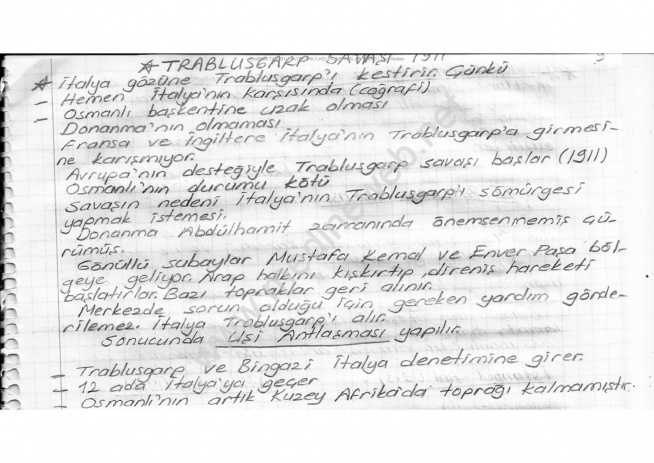 ☆ TRABLUSGARP SAVAŞI 1911
☆ İtalya gözüne Trablusgarp'ı kestirir. Çünkü
- Hemen İtalya'nın karşısında (coğrafi)
- Osmanlı başkentine uzak olması
Donanma'nın olmaması
Fransa ve İngiltere İtalya'nın Trablusgarp'a girmesi-
ne karışmıyor.
Avrupa'nın desteğiyle Trablusgarp savaşı başlar (1911)
Osmanlı'nın durumu kötü
Savaşın nedeni İtalya'nın Trablusgarp'ı sömürgesi
yapmak istemesi.
Donanma Abdülhamit zamanında önemsenmemiş çü-
rümüş.
Gönüllü subaylar Mustafa Kemal ve Enver Paşa böl-
geye geliyor. Arap halkını kışkırtıp, direniş hareketi
başlatırlar. Bazı topraklar geri alınır.
Merkezde sorun olduğu için gereken yardım gönde-
rilemez. İtalya Trablusgarp'ı alır.
Sonucunda Uşi Antlaşması yapılır.
- Trablusgarp ve Bingazi İtalya denetimine girer.
- 12 ada İtalya'ya geçer
- Osmanlı'nın artık Kuzey Afrika'da toprağı kalmamıştır.